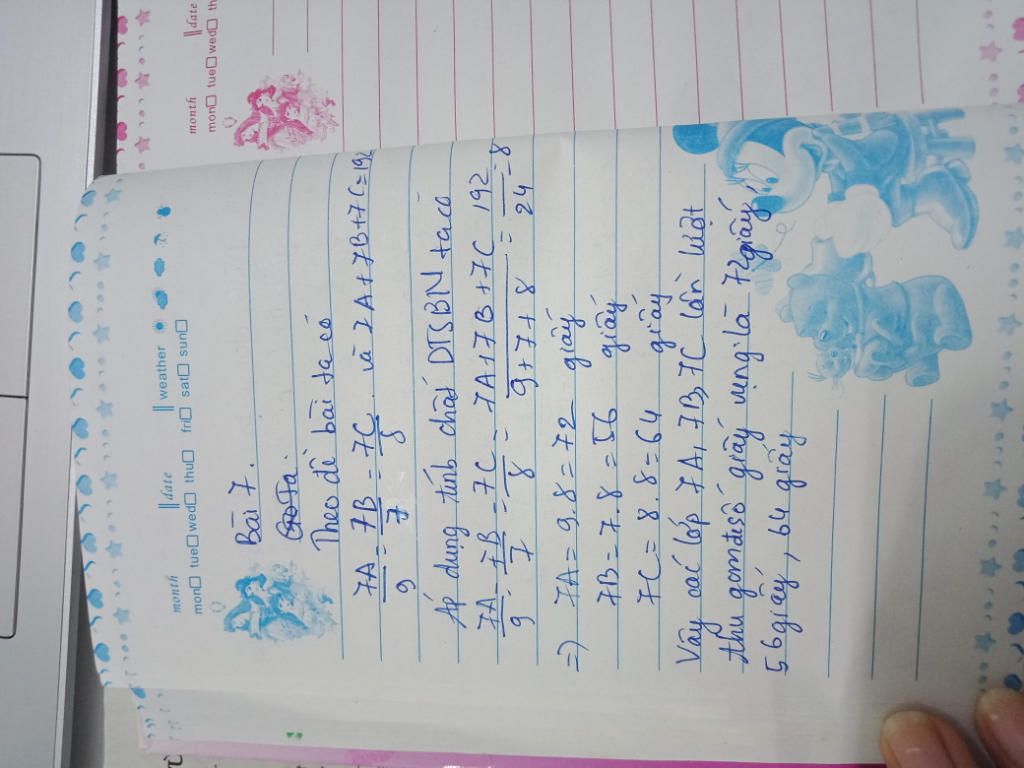 month date weather
mon tue wed thu fri sat sun
Bài 7.
Theo đề bài ta có
7A/9 = 7B/7 = 7C/8 và 7A+7B+7C=192
Áp dụng tính chất DTSBN ta có
7A/9 = 7B/7 = 7C/8 = 7A+7B+7C/9+7+8 = 192/24 = 8
=> 7A = 9.8 = 72 giấy
7B = 7.8 = 56 giấy
7C = 8.8 = 64 giấy
Vậy các lớp 7A, 7B, 7C lần lượt
thu gom đc số giấy vụn là 72 giấy,
56 giấy, 64 giấy
month date
mon tue wed th